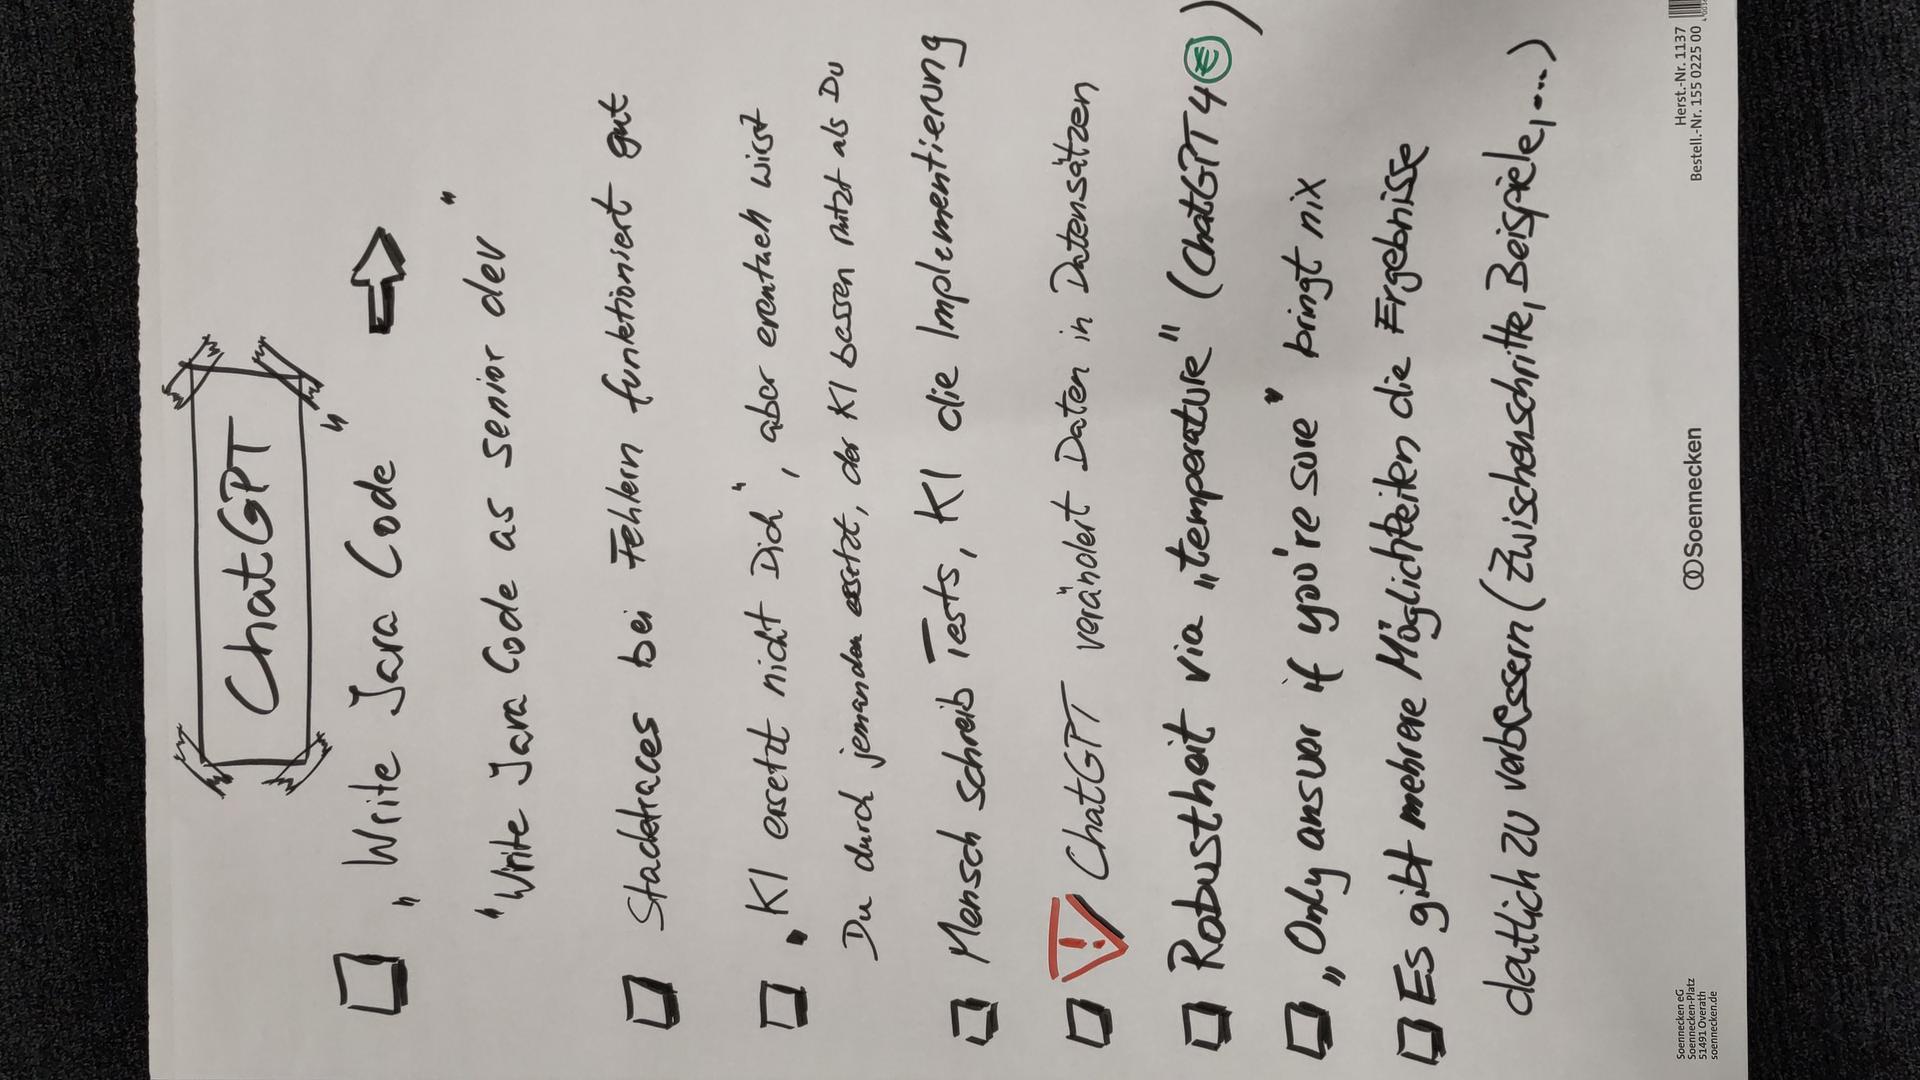 ChatGPT
„Write Java Code“ ⇨
"Write Java Code as senior dev"
Stacktraces bei Fehlern funktioniert gut
„KI ersetzt nicht Dich“, aber eventuell wirst
Du durch jemanden ersetzt, der KI besser nutzt als Du
Mensch schreib Tests, KI die Implementierung
ChatGPT verändert Daten in Datensätzen
Robustheit via „temperature“ (ChatGPT 4 €)
„Only answer if you're sure“ bringt nix
Es gibt mehrere Möglichkeiten die Ergebnisse
deutlich zu verbessern (Zwischenschritte, Beispiele,...)
Soennecken eG
Soennecken-Platz
51491 Overath
soennecken.de
Soennecken
Herst.-Nr. 1137
Bestell.-Nr. 155 0225 00